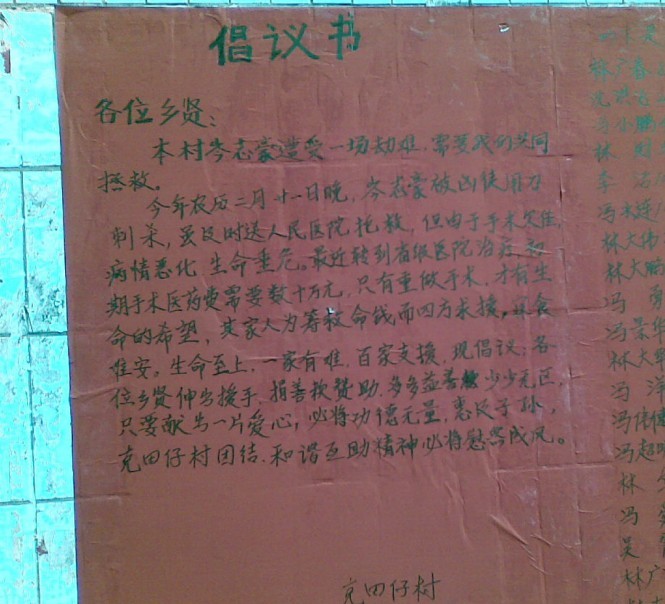 倡议书
各位乡贤：
本村岑志豪遭受一场劫难，需要我们共同
拯救。
今年农历二月廿一日晚，岑志豪被凶徒用刀
刺杀，虽及时送人民医院抢救，但由于手术欠佳，
病情恶化，生命垂危。最近转到省级医院治疗，初
期手术医药费需要数十万元，只有重做手术，才有生
命的希望，其家人为筹救命钱而四方求援，寝食
难安。生命至上，一家有难，百家支援，现倡议：各
位乡贤伸出援手，捐善款赞助，多多益善，少少无区，
只要献出一片爱心，必将功德无量，惠及子孙，
克田仔村团结、和谐互助精神必将蔚然成风。
克田仔村
林广春
冯小鹏
林
李
冯
林大伟
林大鹏
冯勇
冯荣华
林大华
冯
冯伟健
冯超明
林
冯
吴
林广